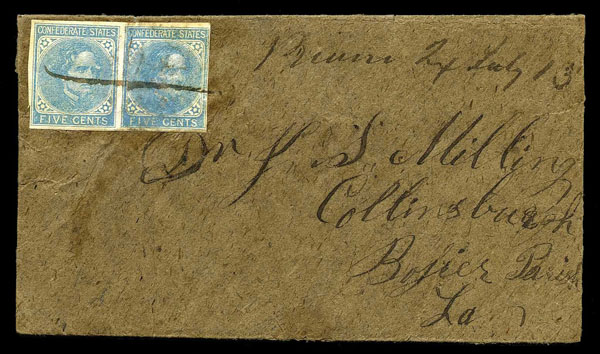 CONFEDERATE STATES
FIVE CENTS
CONFEDERATE STATES
FIVE CENTS
July 13
Dr J. S. Milling
Collinsburgh
Bosier Parish
La